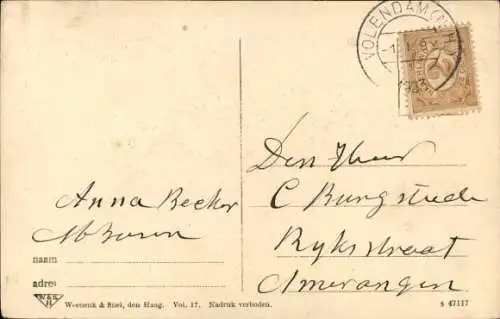 VOLENDAM (N.H.)
Den Heer
C Burgstede
Anna Becker
Rijksstraat
Amerongen
naam
adres
W & S
H
Weenenk & Snel, den Haag. Vol. 17. Nadruk verboden.
s 47117